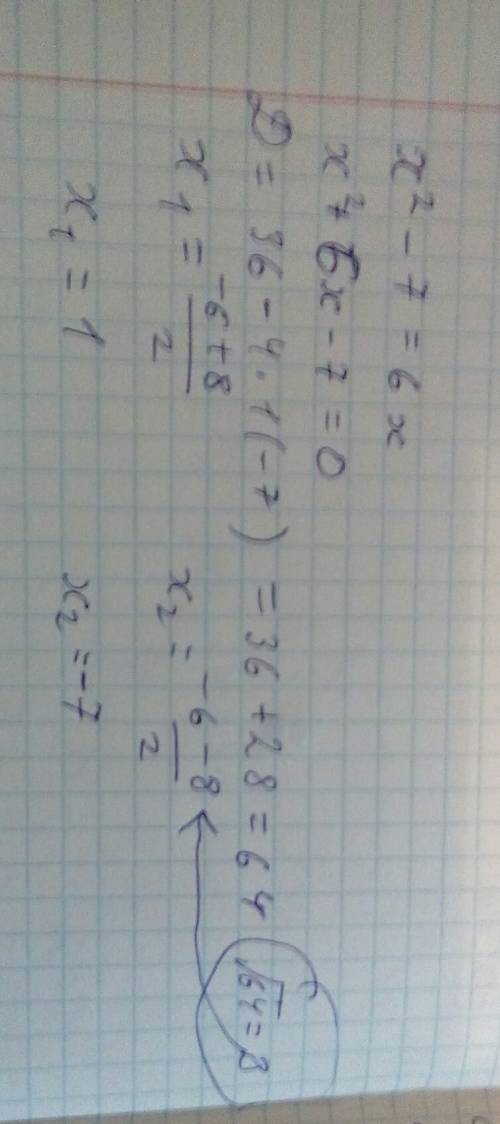 x² - 7 = 6x
x² + 6x - 7 = 0
D = 36 - 4 · 1(-7) = 36 + 28 = 64 √64 = 8
x₁ = (-6 + 8)/2 x₂ = (-6 - 8)/2
x₁ = 1 x₂ = -7